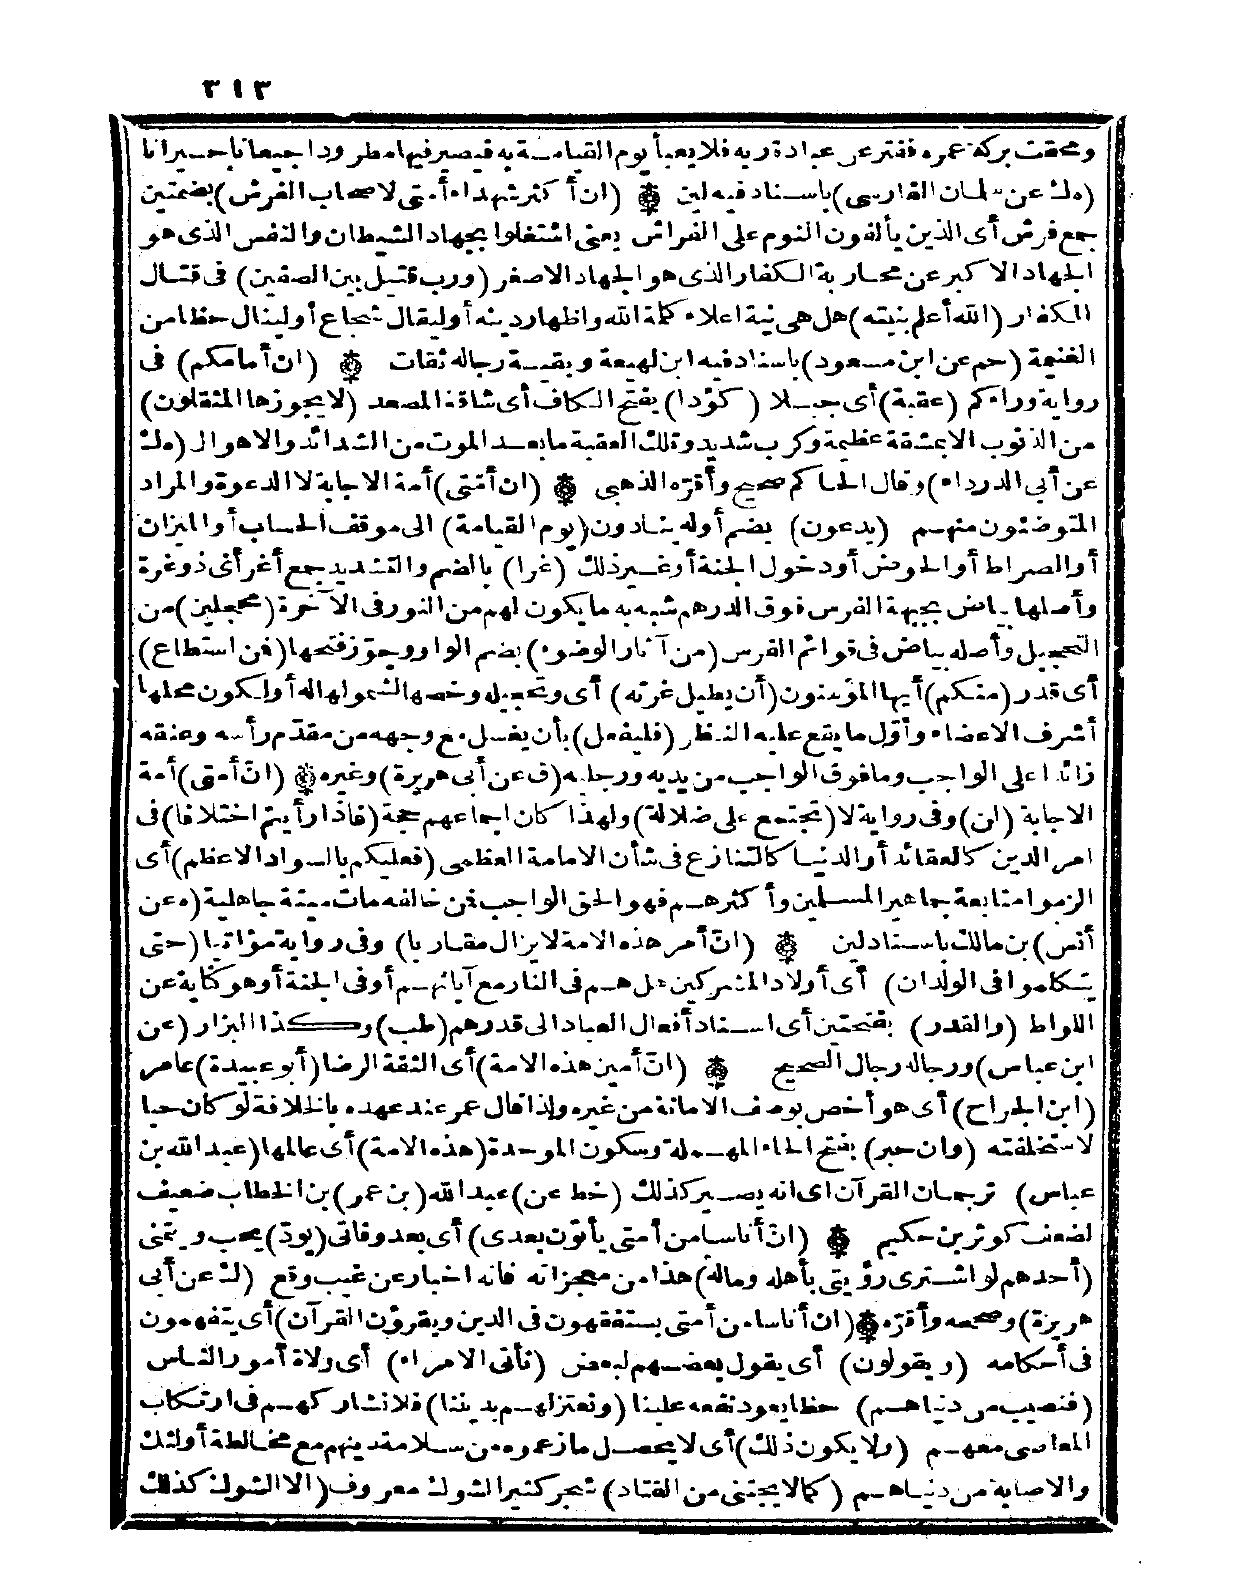 ٣١٣
ومحقت بركة عمره ففتر عن عبادة ربه فلا يعبأ يوم القيامة به فيصير فيها مطرودا جيعانا حسيرانا
(ه ك عن سلمان الفارسى) باسناد فيه لين (ان أكثر شهداء أمتى لاصحاب الفرش) بضمتين
جمع فرش أى الذين يألفون النوم على الفراش يعنى اشتغلوا بجهاد الشيطان والنفس الذى هو
الجهاد الاكبر عن محاربة الكفار الذى هو الجهاد الاصغر (ورب قتيل بين الصفين) فى قتال
الكفار (الله أعلم بنيته) هل هى نية اعلاء كلمة الله واظهار دينه أو ليقال شجاع أو لينال حظا من
الغنيمة (حم عن ابن مسعود) باسناد فيه ابن لهيعة وبقية رجاله ثقات (ان أمامكم) فى
رواية وراءكم (عقبة) أى جبلا (كؤدا) بفتح الكاف أى شاقة المصعد (لا يجوزها المثقلون)
من الذنوب الا بمشقة عظيمة وكرب شديد وتلك العقبة ما بعد الموت من الشدائد والاهوال (ه ك
عن أبى الدرداء) وقال الحاكم صحيح وأقره الذهبى (ان أمتى) أمة الاجابة لا الدعوة والمراد
المتوضئون منهم (يدعون) بضم أوله ينادون (يوم القيامة) الى موقف الحساب أو الميزان
أو الصراط أو الحوض أو دخول الجنة أو غير ذلك (غرا) بالضم والتشديد جمع أغر أى ذو غرة
وأصلها بياض بجبهة الفرس فوق الدرهم شبه به ما يكون لهم من النور فى الآخرة (محجلين) من
التحجيل وأصله بياض فى قوائم الفرس (من آثار الوضوء) بضم الواو وجوز فتحها (فمن استطاع)
أى قدر (منكم) أيها المؤمنون (أن يطيل غرته) أى وتحجيله وخصها لشمولها له أو لكون محلها
أشرف الاعضاء وأول ما يقع عليه النظر (فليفعل) بأن يغسل مع وجهه من مقدم رأسه وعنقه
زائدا على الواجب وما فوق الواجب من يديه ورجليه (ق عن أبى هريرة) وغيره (ان أمتى) أمة
الاجابة (لن) وفى رواية لا (تجتمع على ضلالة) ولهذا كان اجماعهم حجة (فاذا رأيتم اختلافا) فى
امر الدين كالعقائد أو الدنيا كالتنازع فى شأن الامامة العظمى (فعليكم بالسواد الاعظم) أى
الزموا متابعة جماهير المسلمين وأكثرهم فهو الحق الواجب فمن خالفه مات ميتة جاهلية (ه عن
أنس) بن مالك باسناد لين (ان أمر هذه الامة لا يزال مقاربا) وفى رواية مؤاتيا (حتى
يتكلموا فى الولدان) أى أولاد المشركين هل هم فى النار مع آبائهم أو فى الجنة أو هو كناية عن
اللواط (والقدر) بفتحتين أى اسناد أفعال العباد الى قدرهم (طب) وكذا البزار (عن
ابن عباس) ورجاله رجال الصحيح (ان أمين هذه الامة) أى الثقة الرضا (أبو عبيدة) عامر
(ابن الجراح) أى هو أخص بوصف الامانة من غيره ولذا قال عمر عند عهده بالخلافة لو كان حيا
لاستخلفته (وان حبر) بفتح الحاء المهملة وسكون الموحدة (هذه الامة) أى عالمها (عبد الله بن
عباس) ترجمان القرآن اى انه يصير كذلك (خط عن) عبد الله (بن عمر) بن الخطاب ضعيف
لضعف كوثر بن حكيم (ان أناسا من أمتى يأتون بعدى) أى بعد وفاتى (يود) يحب ويتمنى
(أحدهم لو اشترى رؤيتى بأهله وماله) هذا من معجزاته فانه اخبار عن غيب وقع (ك عن أبى
هريرة) وصححه وأقره (ان أناسا من أمتى يستفقهون فى الدين ويقرؤن القرآن) أى يتفهمون
فى أحكامه (ويقولون) أى يقول بعضهم لبعض (نأتى الامراء) أى ولاة أمور الناس
(فنصيب من دنياهم) حظا يعود نفعه علينا (ونعتزلهم بديننا) فلا نشاركهم فى ارتكاب
المعاصى معهم (ولا يكون ذلك) أى لا يحصل ما زعموه من سلامة دينهم مع مخالطة أولئك
والاصابة من دنياهم (كما لا يجتنى من القتاد) شجر كثير الشوك معروف (الا الشوك كذلك